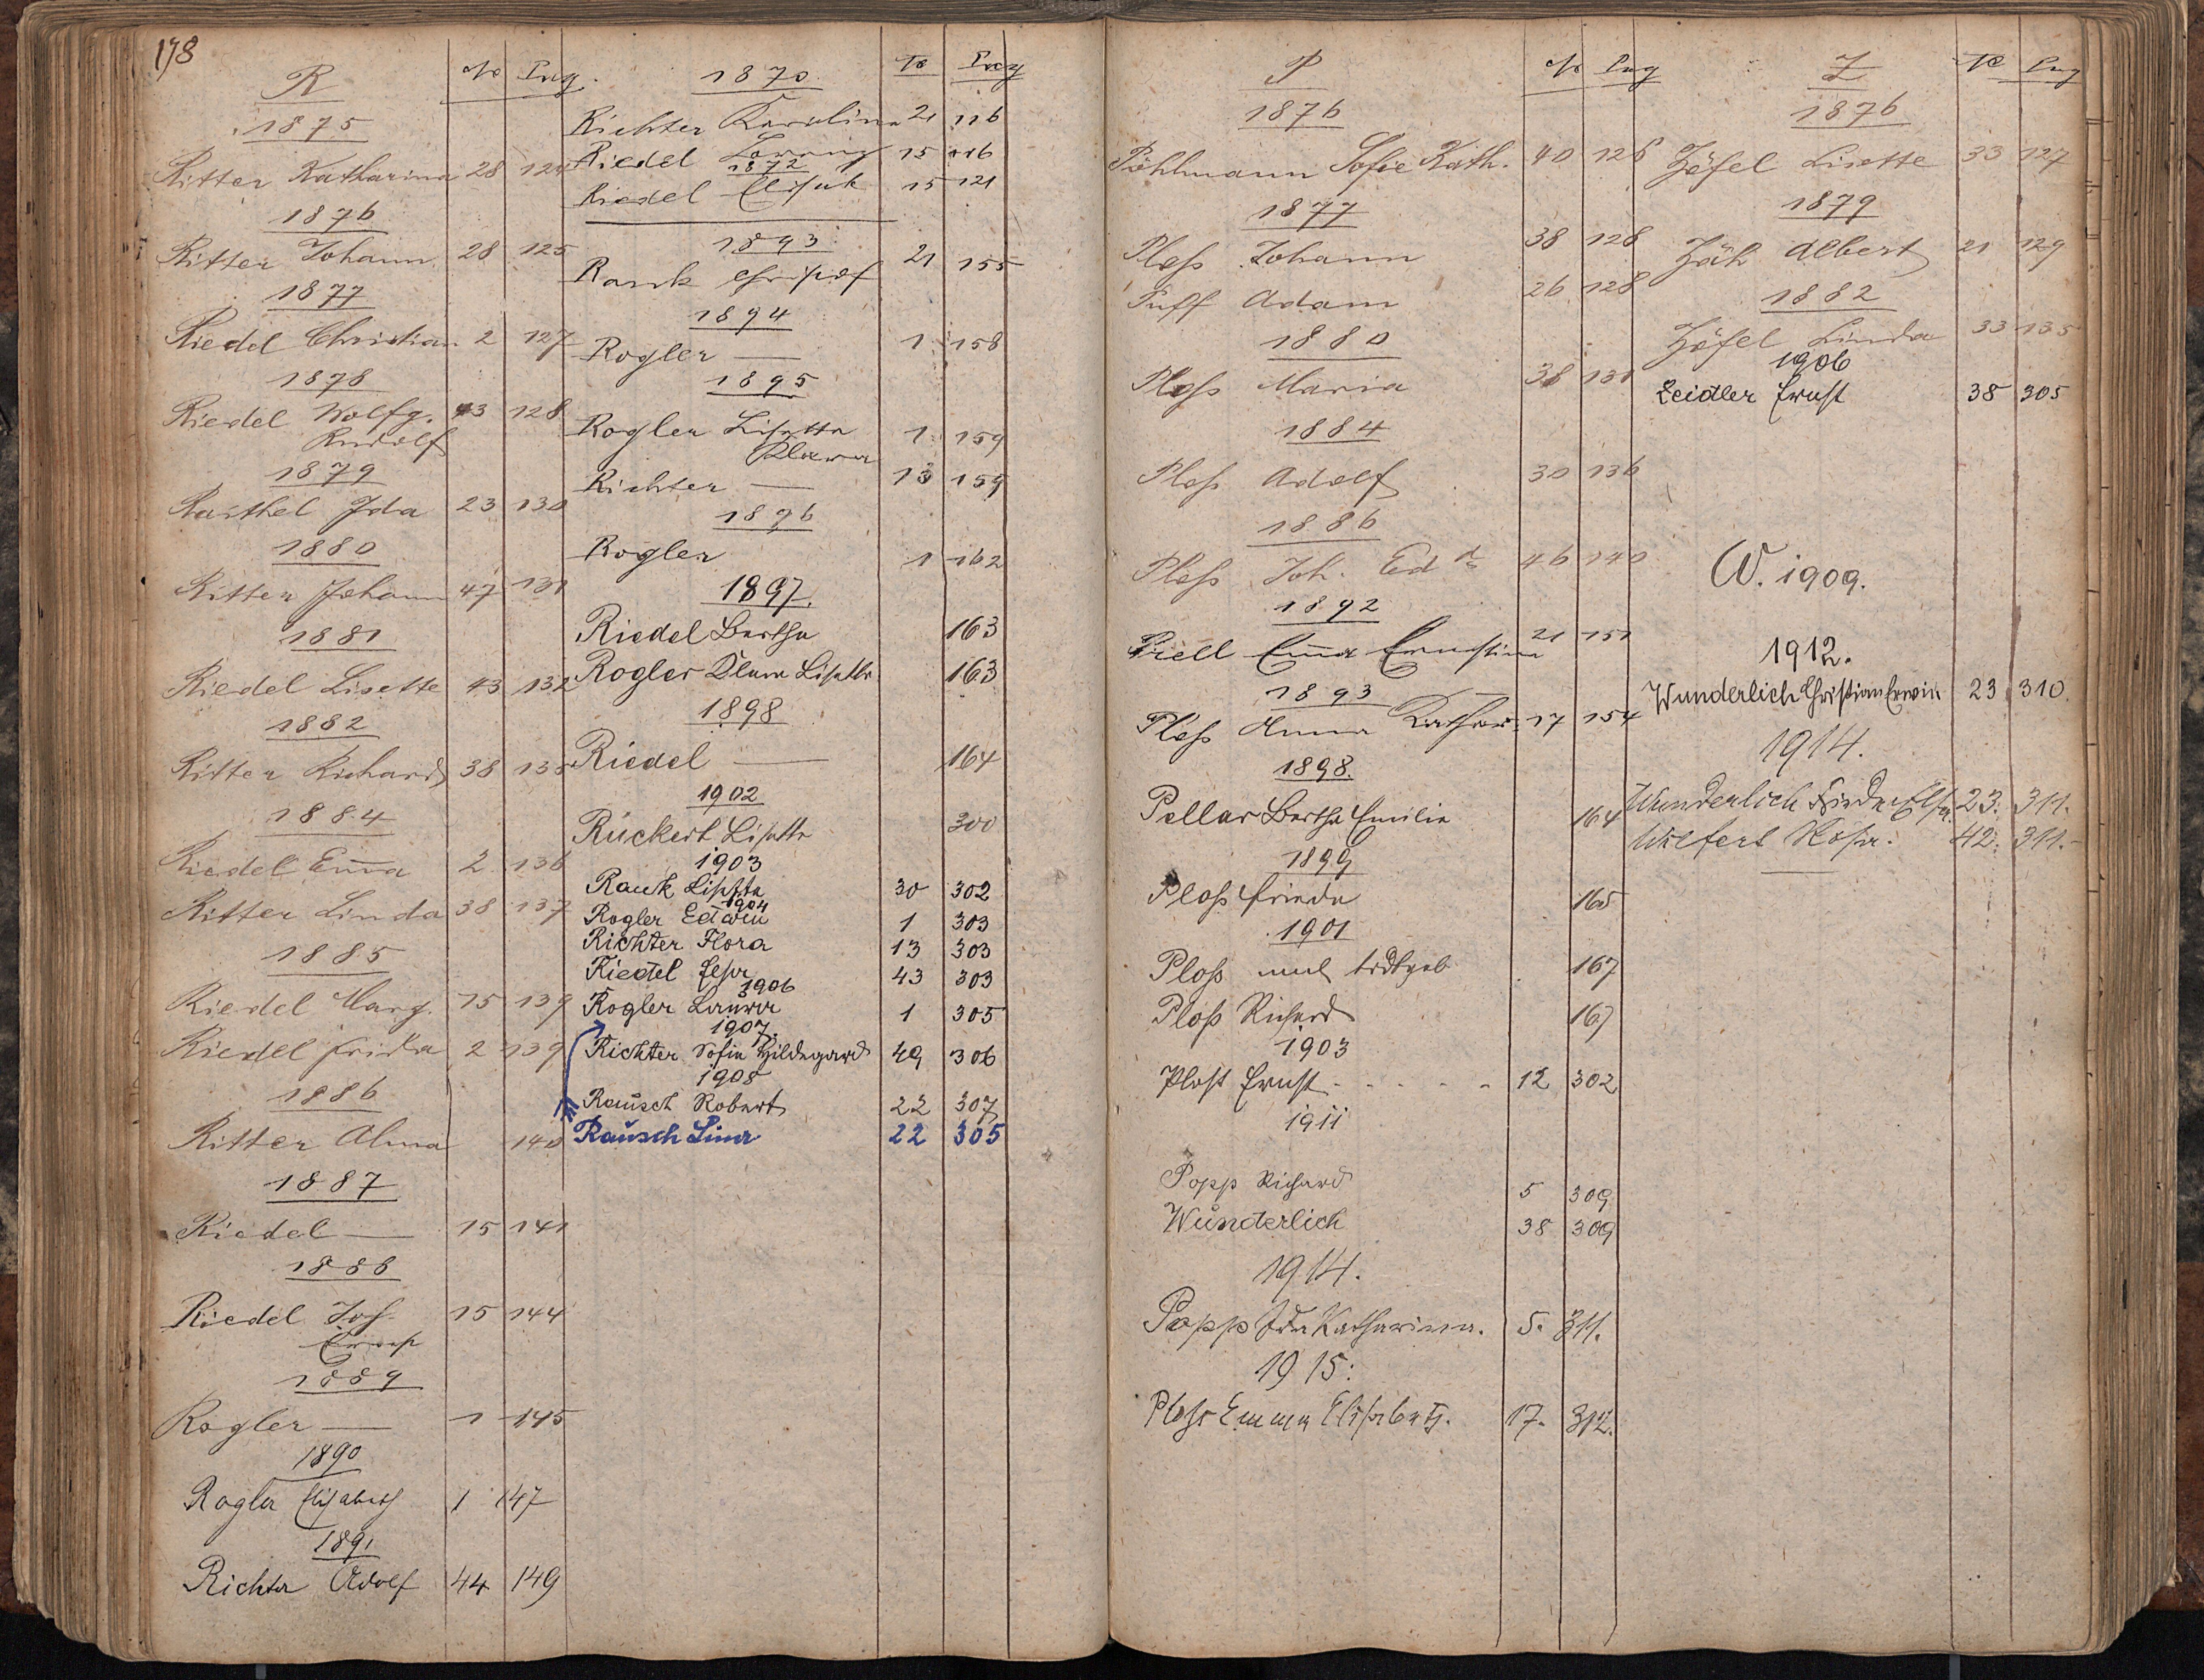 178
R
No Pag.
1875
Ritter Katharina 28 124
1876
Ritter Johann 28 125
1877
Riedel Christian 2 127
1878
Riedel Wolfg. 43 128
Rudolf
1879
Rasthel Ida 23 130
1880
Ritter Johann 47 131
1881
Riedel Lisette 43 132
1882
Ritter Richard 38 135
1884
Riedel Em̄a 2 136
Ritter Linda 38 137
1885
Riedel Marg. 15 139
Riedel Frieda 2 139
1886
Ritter Alma 140
1887
Riedel — 15 141
1888
Riedel Joh. 15 144
Ernst
1889
Rogler — 1 145
1890
Rogler Elisabeth 1 147
1891
Richter Adolf 44 149
1870
No Pag
Richter Karolina 21 116
Riedel Lorenz 15 116
1872
Riedel Elisab. 15 121
1893
Rank Christof 21 155
1894
Rogler — 1 158
1895
Rogler Lisette 1 159
Klara
Richter — 13 159
1896
Rogler 1 162
1897.
Riedel Bertha 163
Rogler Klara Lisette 163
1898
Riedel — 164
1902
Rückert Lisette 300
1903
Rauk Lisette 30 302
1904
Rogler Edwin 1 303
Richter Flora 13 303
Riedel Elsa 43 303
1906
Rogler Laura 1 305
1907.
Richter Sofie Hildegard 49 306
1908
Rausch Robert 22 307
Rausch Lina 22 305
P
No Pag
1876
Pöhlmann Sofie Kath. 40 126
1877
Ploß Johann 38 128
Puff Adam 26 128
1880
Ploß Maria 38 131
1884
Ploß Adolf 30 136
1886
Ploß Joh. Ed 46 140
1892
Prell Em̄a Ernstine 21 151
1893
Ploß Anna Kathar. 17 154
1898.
Pellar Bertha Emilie 164
1899
Ploß Frieda 165
1901
Ploß todtgeb 167
Ploß Richard 167
1903
Plost Ernst - - - - - 12 302
1911
Popp Richard 5 309
Wunderlich 38 309
1914.
Popp Ida Katharina. 5. 311.
1915:
Ploss Emma Elisabeth. 17. 312.
Z
No Pag
1876
Zöfel Lisette 33 127
1879
Zäh Albert 21 129
1882
Zöfel Linda 33 135
1906
Zeidler Ernst 38 305
W. 1909.
1912.
Wunderlich Christian Erwin 23 310.
1914.
Wunderlich Frieda Elsa. 23. 311.
Wilfert Rosa. 42. 311.